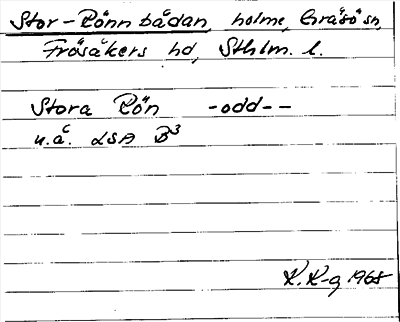 Stor-Rönnbådan, holme, Gräsö sn,
Frösåkers hd, Sthlm. l.
Stora Rön -odd--
u.å. LSA B3
K. K-g 1968